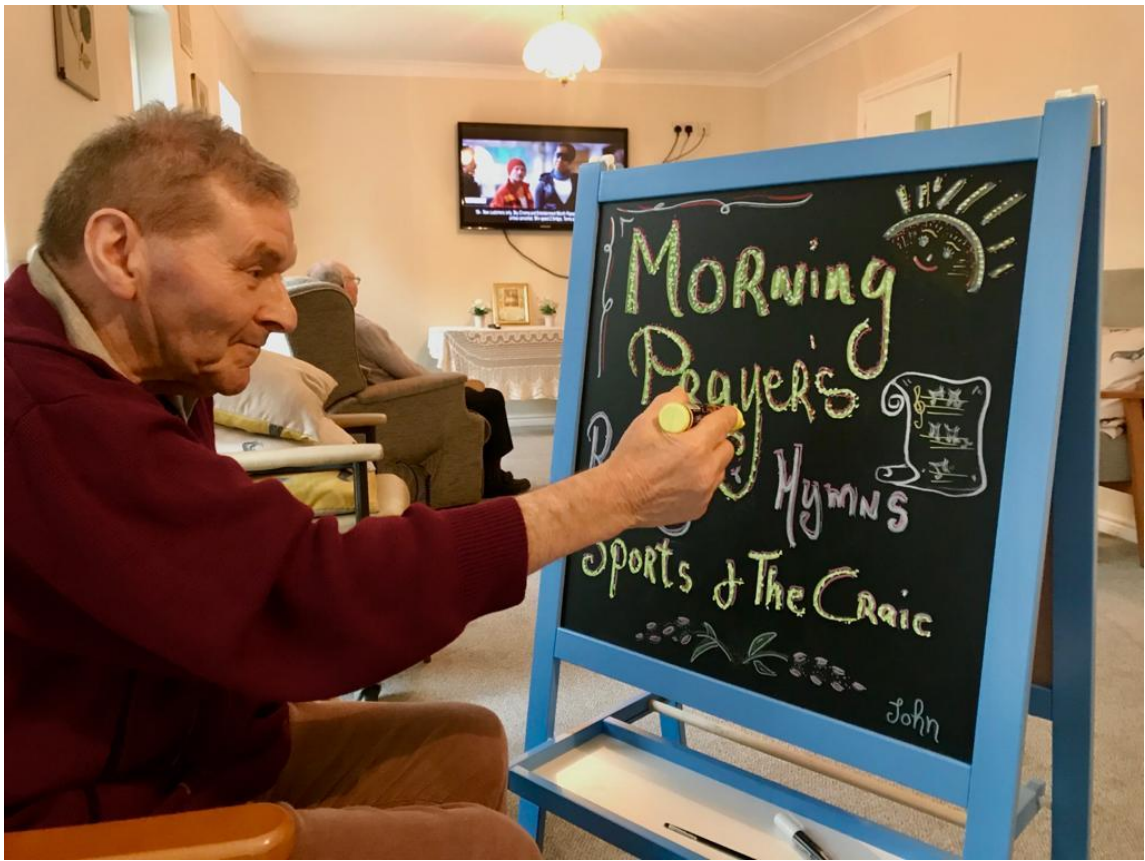 Morning
Prayer's
Hymns
Sports & The Craic
John